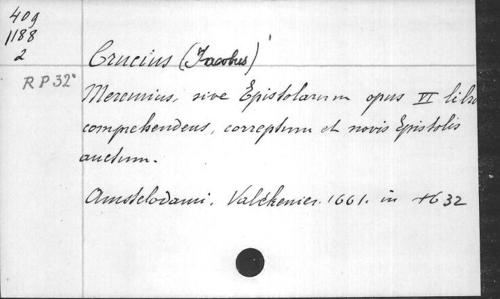 409
1188
2
RP 32°
Crucius (Jacobus)
Mercurius, sive Epistolarum opus VI libr
comprehendens, correptum et novis Epistolis
auctum.
Amstelodami, Valckenier. 1661. in
32